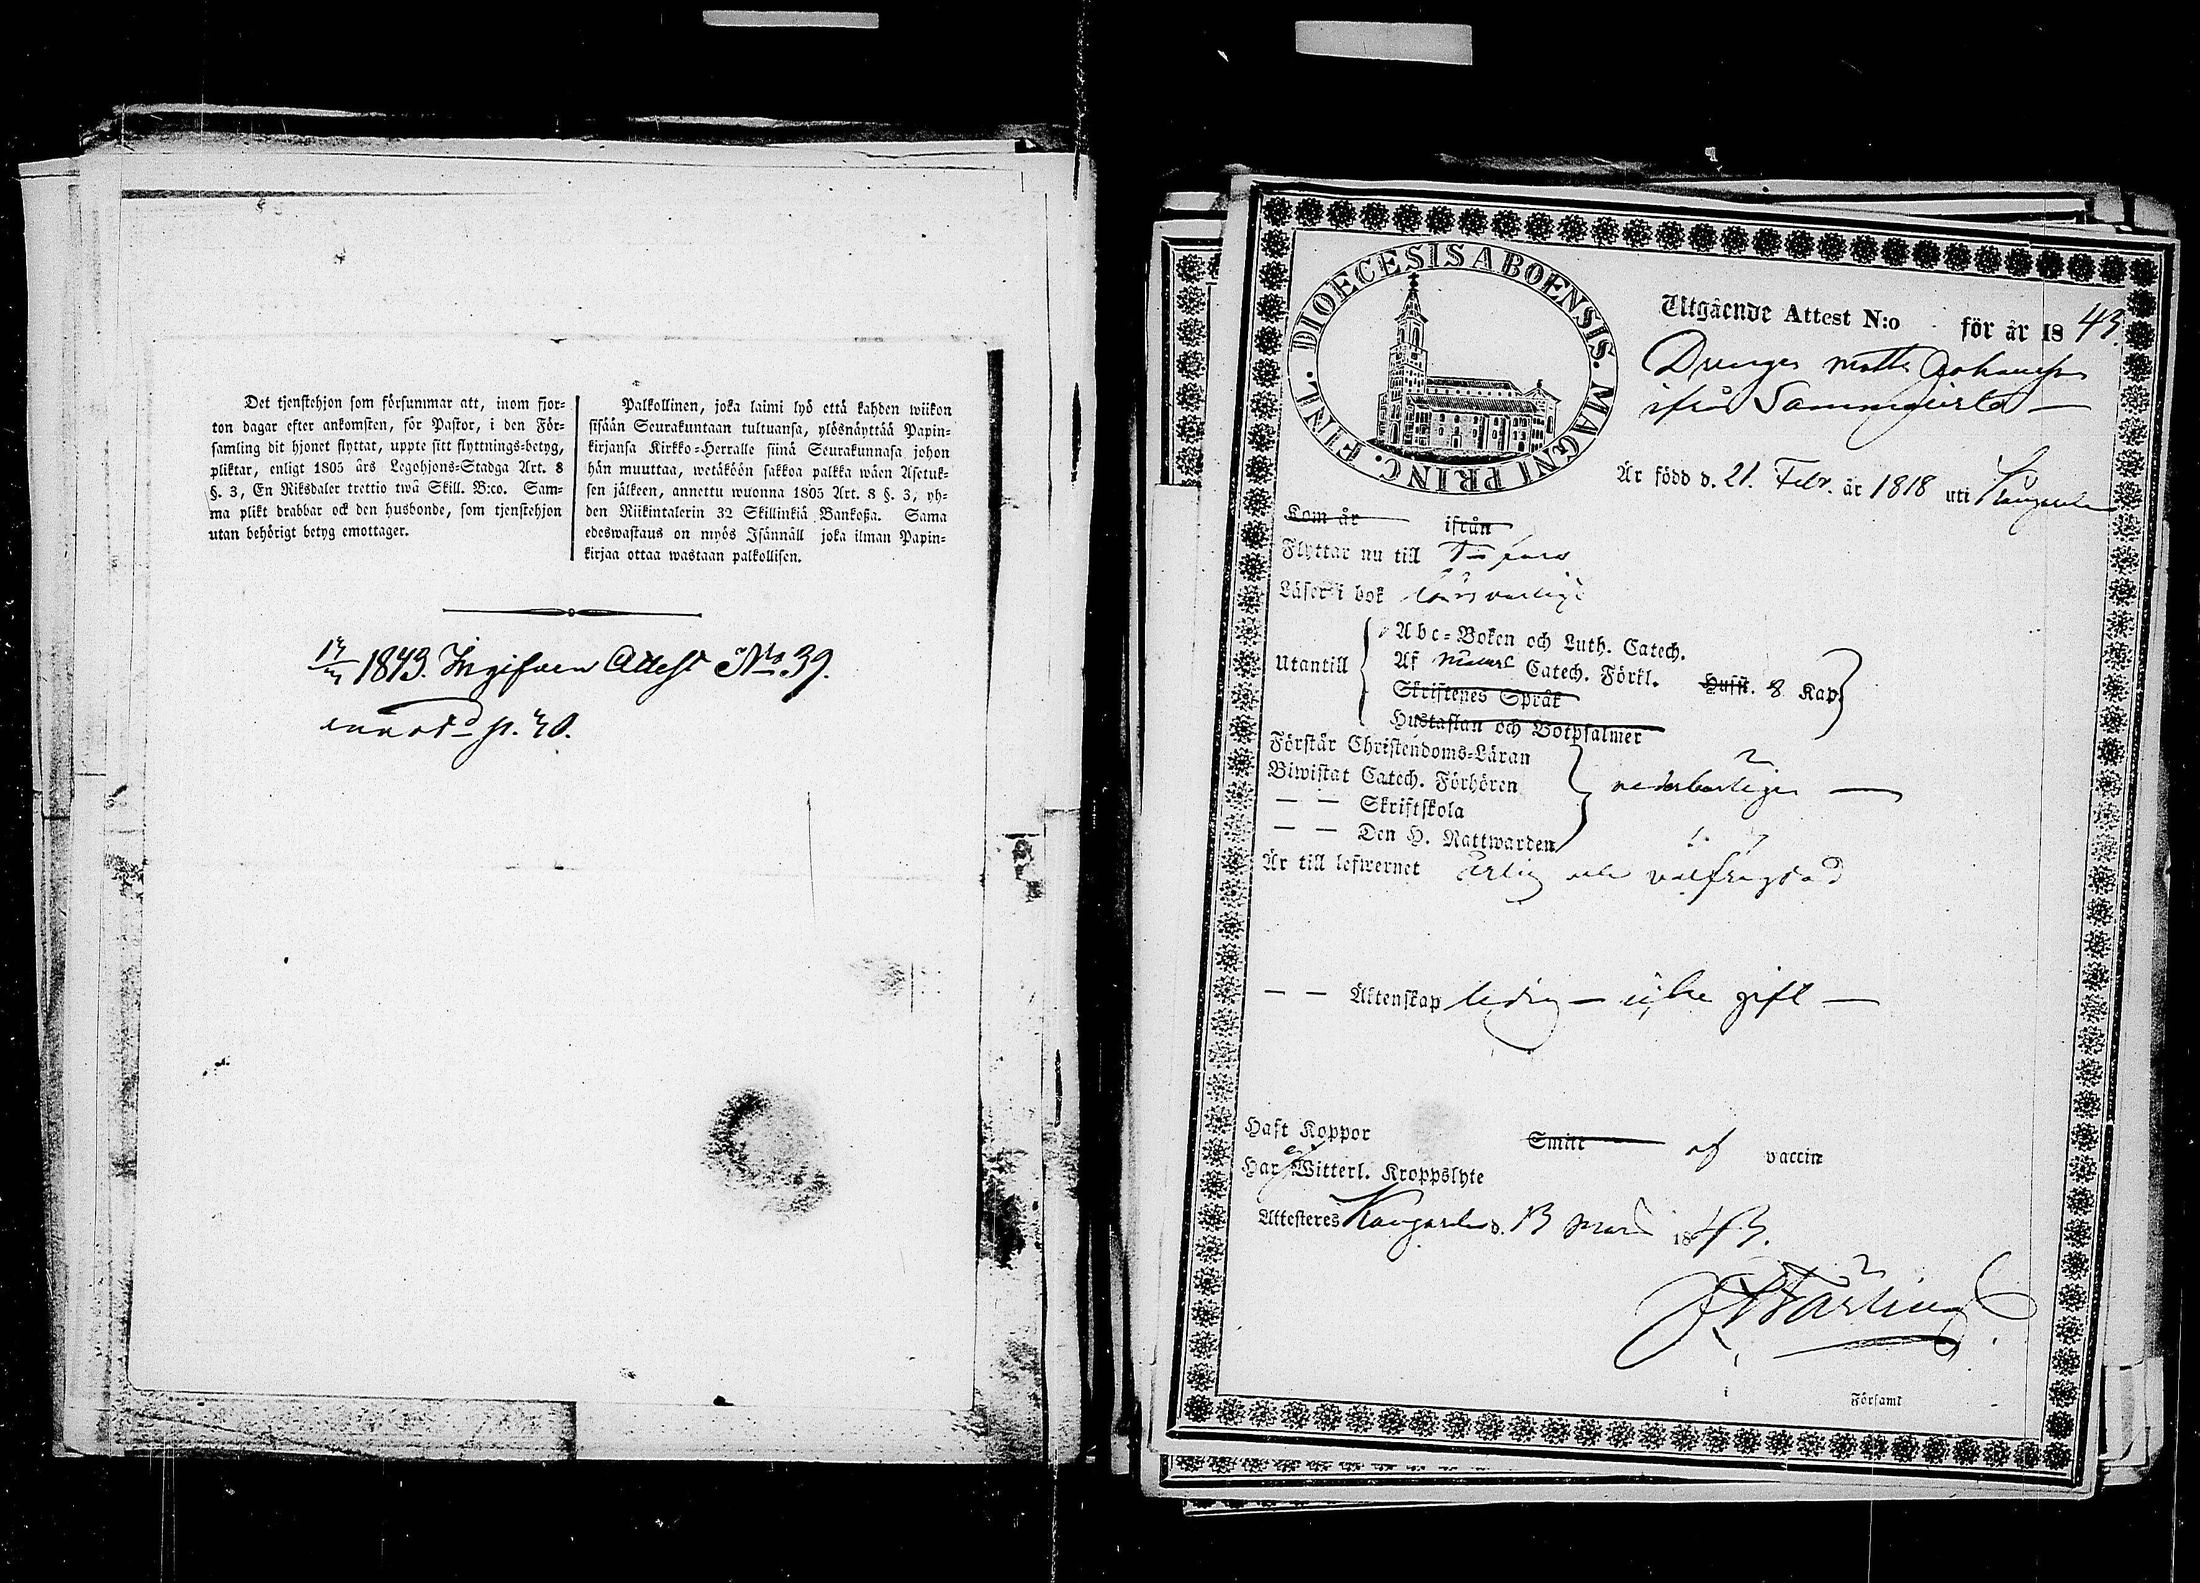 Det tjenstehjon som försummar att, inom fjor-
ton dagar efter ankomsten, för Pastor, i den För-
samling dit hjonet flyttat, uppte sitt flyttnings-betyg,
pliktar, enligt 1805 års Legohjons-Stadga Art. 8
§. 3, En Riksdaler trettio twå Skill. B:co. Sam-
ma plikt drabbar ock den husbonde, som tjenstehjon
utan behörigt betyg emottager.
Palkollinen, joka laimi lyö että kahden wiikon
sisään Seurakuntaan tultuansa, ylösnäyttää Papin-
kirjansa Kirkko-Herralle siinä Seurakunnasa johon
hän muuttaa, wetäköön sakkoa palkka wäen Asetuk-
sen jälkeen, annettu wuonna 1805 Art. 8 §. 3, yh-
den Riikintalerin 32 Skillinkiä Bankoßa. Sama
edeswastaus on myös Isännäll joka ilman Papin-
kirjaa ottaa wastaan palkollisen.
1843. Ingifven Attest No 39.
p. 30.
FINL. DIOECESIS ABOENSIS. MAGNI PRINC.
Utgående Attest N:o för år 1843.
Drengen Matts Johansson
ifrån
Är född d. 21. Febr. år 1818 uti Kangasala
Kom år ifrån
Flyttar nu till
Läser i bok försvarligt
Utantill
Abc-Boken och Luth. Catech.
Af Catech. Förkl. Husst. 8 Kap.
Skriftenes Språk
Hustaflan och Botpsalmer
Förstår Christendoms-Läran
Biwistat Catech. Förhören
— — Skriftskola
— — Den H. Nattwarden
vederbörligen —
Är till lefwernet ärlig och välfrägdad
— — Äktenskap ledig — icke gift —
Haft Koppor Smitt af vaccin
Har ej Witterl. Kroppslyte
Attesteres Kangasala d. 13 Mars 1843.
i Församl